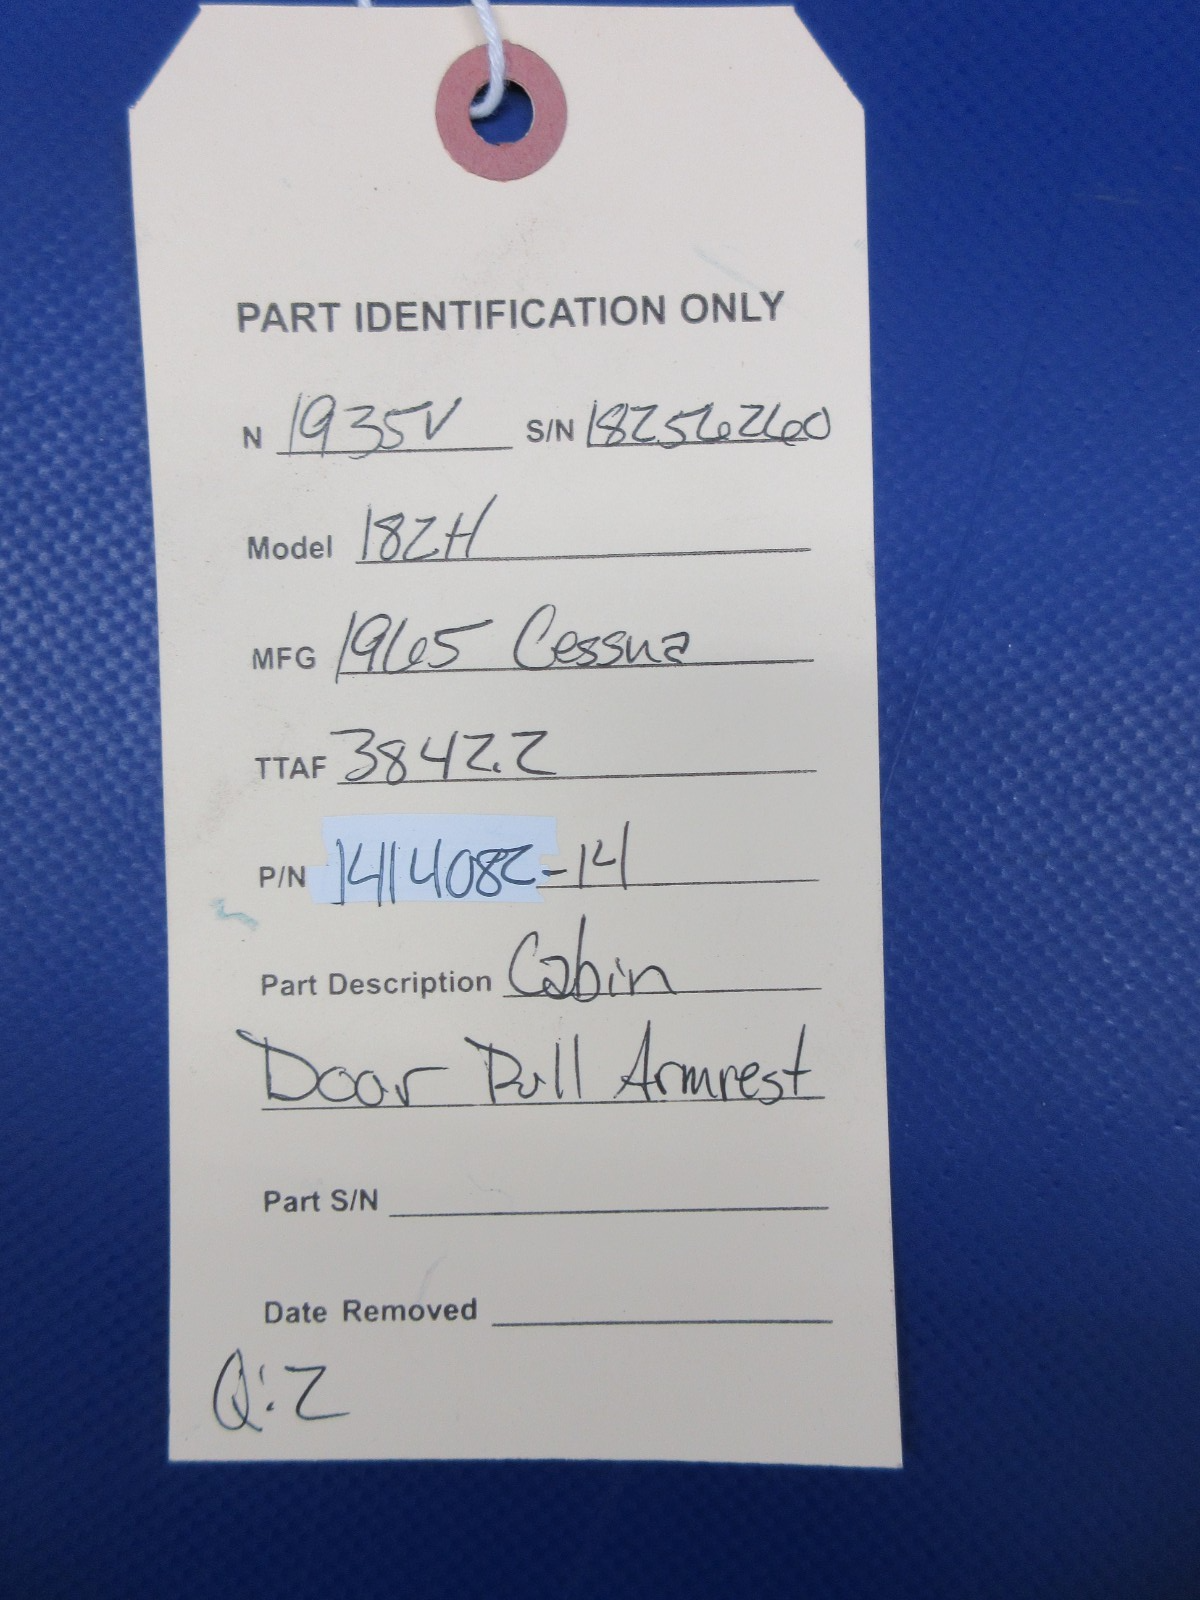 PART IDENTIFICATION ONLY
N 1935V S/N 18256260
Model 182H
MFG 1965 Cessna
TTAF 3842.2
P/N 1414082-14
Part Description Cabin
Door Pull Armrest
Part S/N
Date Removed
Q:2